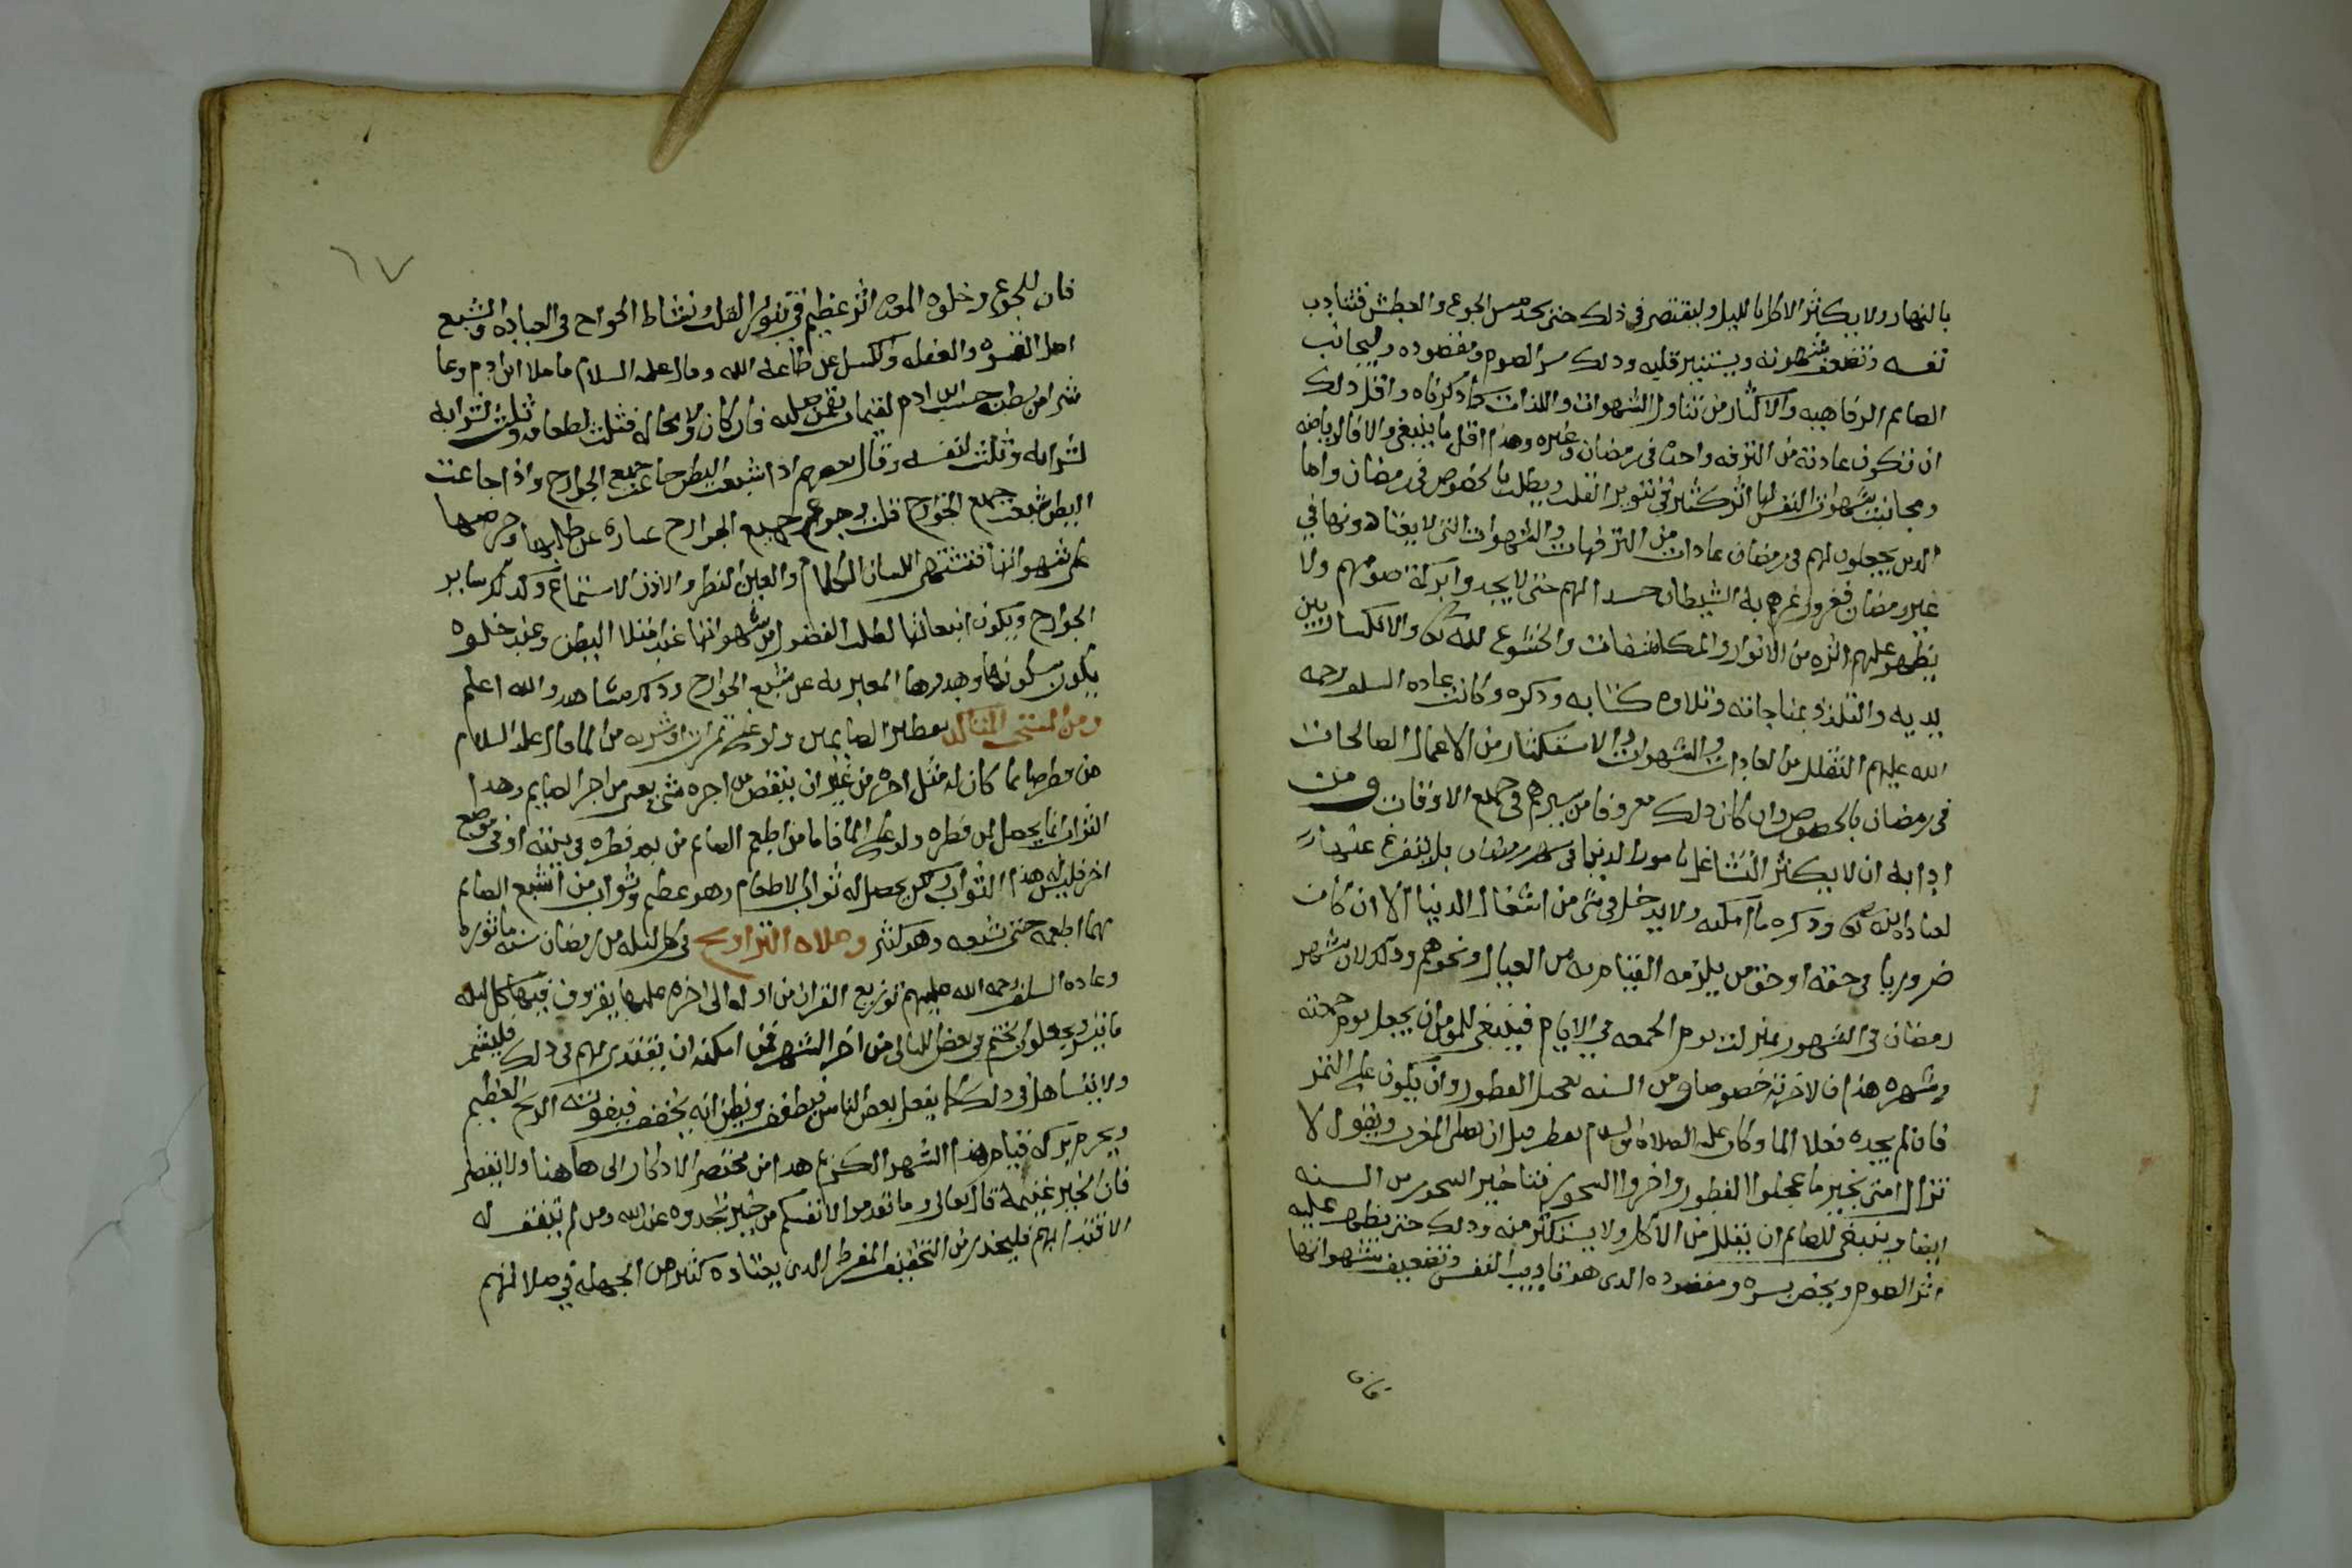 بالنهار ولا يكثر الاكل بالليل وليقتصر في ذلك حتى يجد مس الجوع والعطش فتتادب
نفسه وتضعف شهوته ويستنير قلبه وذلك سر الصوم ومقصوده وليجانب
الصايم الرفاهيه والاكثار من تناول الشهوات واللذات كما ذكرناه واقل ذلك
ان تكون عادته من الترفه واحده في رمضان وغيره وهذا اقل ما ينبغي والا فالرياضه
ومجانبت شهوات النفس لها اثر كثير في تنوير القلب ويطلب بالخصوص في رمضان واما
الدين يجعلون لهم في رمضان عادات من الترفهات والشهوات التي لا يعتادونها في
غير رمضان فغرور غرهم به الشيطان حسدا لهم حتى لا يجدوا بركة صومهم ولا
يظهر عليهم اثره من الانوار والمكاشفات والخشوع لله تعالى والانكسار بين
يديه والتلذذ بمناجاته وتلاوه كتابه وذكره وكانت عاده السلف رحمه
الله عليهم التقلل من العادات والشهوات والاستكثار من الاعمال الصالحات
في رمضان بالخصوص وان كان ذلك معروفا من سيرهم في جميع الاوقات ومن
ادابه ان لا يكثر التشاغل بامور الدنيا في شهر رمضان بل يتفرغ عنها
لعباده الله تعالى وذكره ما امكنه ولا يدخل في شي من اشغال الدنيا الا ان كان
ضروريا في حقه او حق من يلزمه القيام به من العيال ونحوهم وذلك لان شهر
رمضان في الشهور بمنزلت يوم الجمعه في الايام فينبغي للمومن ان يجعل يوم جمعته
وشهره هذا لاخرته خصوصا ومن السنه تعجيل الفطور وان يكون على التمر
فان لم يجده فعلا الما وكان عليه الصلاة والسلام يفطر قبل ان يصلي المغرب ويقول لا
تزال امتي بخير ما عجلوا الفطور واخروا السحور فتاخير السحور من السنه
ايضا وينبغي للصايم ان يقلل من الاكل ولا يستكثر منه وذلك حتى يظهر عليه
اثر الصوم ويخص بسره ومقصوده الدى هو تاديب النفس وتضعيف شهواتها
فان
٦٧
فان للجوع وخلوه المعده اثر عظيم في تنوير القلب ونشاط الجوارح في العباده والشبع
اصل القسوه والغفله والكسل عن طاعه الله وقال عليه السلام ما ملا ابن ادم وعا
شرا من بطنه حسب ابن ادم لقيمات يقمن صلبه فان كان ولا محاله فثلث لطعامه وثلث لشرابه
لشرابه وثلث لنفسه وقال بعضهم اذا شبعت البطن جاعت جميع الجوارح واذا جاعت
البطن شبعت جميع الجوارح قلت وجوع جميع الجوارح عباره عن طلبها وحرصها
على شهواتها فتشتهى اللسان الكلام والعين النظر والاذن الاستماع وكذلك ساير
الجوارح ويكون انبعاثها لطلب الفضول من شهواتها عند امتلا البطن وعند خلوه
يكون سكونها وهدوها المعبر به عن شبع الجوارح وذلك مشاهد والله اعلم
ومن المستحب المتاكد تفطير الصايمين ولو على تمرات او شربه من الما قال عليه السلام
من فطر صايما كان له مثل اجره من غير ان ينقص من اجره شي يعني من اجر الصايم وهدا
الثواب انما يحصل لمن فطره ولو على الما فاما من اطعم الصايم من بعد فطره في بيته او في موضع
اخر فليس له هذا الثواب ولكن يحصل له ثواب الاطعام وهو عظيم وثواب من اشبع الصايم
مما اطعمه حتى شبعه وهو كثير وصلاه التراويح في كل ليله من رمضان سنه ماثوره
وعاده السلف رحمه الله عليهم توزيع القران من اوله الى اخره عليها يقرون فيها كل ليله
ما تيسر ويجعلون الختم في بعض الليالي من اخر الشهر فمن امكنه ان يقتدى بهم في ذلك فليشمر
ولا يتساهل في ذلك كما يفعل بعض الناس فيطفف ويظن انه يخفف فيفوته الربح العظيم
ويحرم بركه قيام هذا الشهر الكريم هدا من مختصر الاذكار الى هاهنا ولا يقصر
فان الخير غنيمة قال تعالى وما تقدموا لانفسكم من خير تجدوه عند الله ومن لم يتفق له
الاقتدا بهم فليحذر من التخفيف المفرط الدى يعتاده كثير من الجهله في صلاتهم